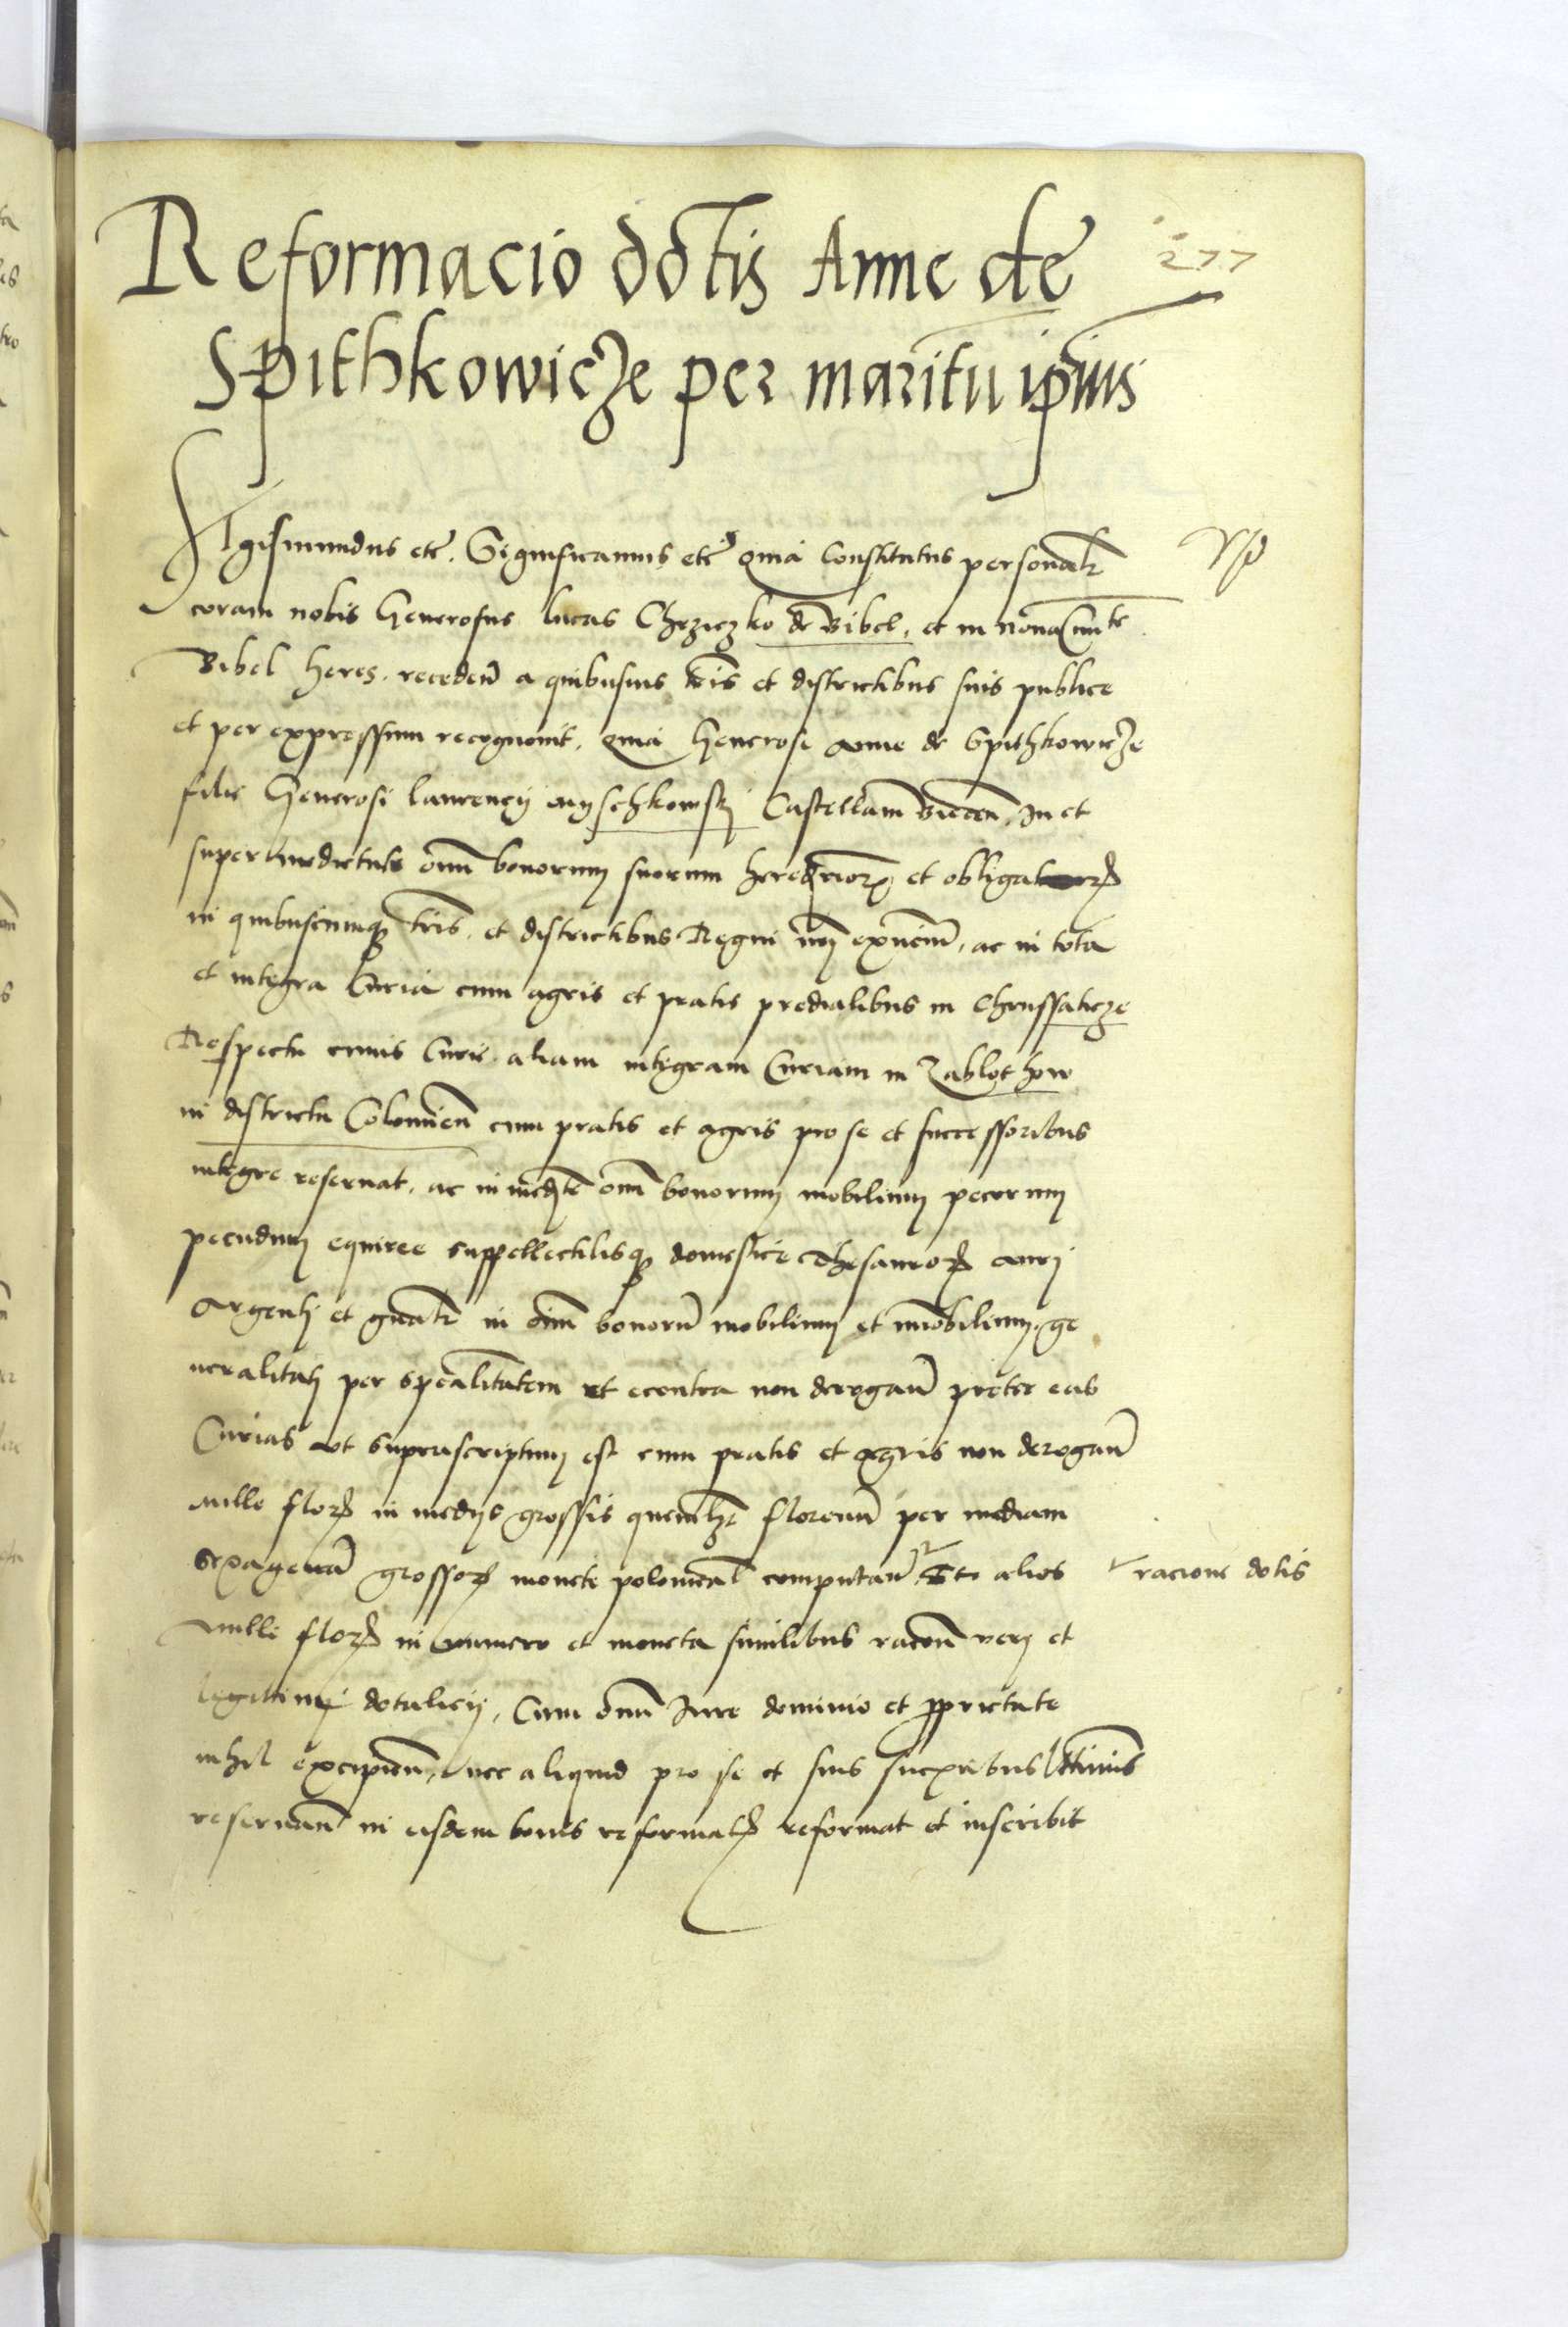 Reformacio dotis Anne de
277
Spithkowicze per maritu ipius
Sigismundus etc. Significamus etc quia Constitutus personalr
coram nobis Generosus lucas Chrziczko de Bibel, et in nona
Bibel heres. receden a quibusvis tris et districtibus suis publice
et per expressum recognovit, quia Generose Anne de Spithkowicze
filie Generosi laurencij myschkowskj Castellani Biecen, In et
super medietate omni bonorum suorum hereditarior et obligat
in quibuscumque tris et districtibus Regni nri existen, ac in tota
et integra Curia cum agris et pratis predialibus in Chrussaticze
Respectu cuius Curie aliam integram Curiam in Zablothow
in districtu Colomien cum pratis et agris pro se et successoribus
integre reservat, ac in medte omni bonorum mobilium pecorum
pecudum equiree suppellectilisque domestice Thesauror aurj
Argentj et gnalr in oim bonoru mobilium et imobilium. ge
neralitatj per spealitatem et econtra non derogan preter eas
Curias ut suprascriptum est cum pratis et agris non derogan
mille flor in medijs grossis quemlzt florenum per mediam
sexagena grossor monete polonical computan Et alios
racione dotis
mille flor in numero et moneta similibus racon verj et
legittimj dotalicij, Cum omni Jure dominio et pprietate
nihil excipien, nec aliquid pro se et suis sucxoribus lttimis
reservan in eisdem bonis reformat reformat et inscribit